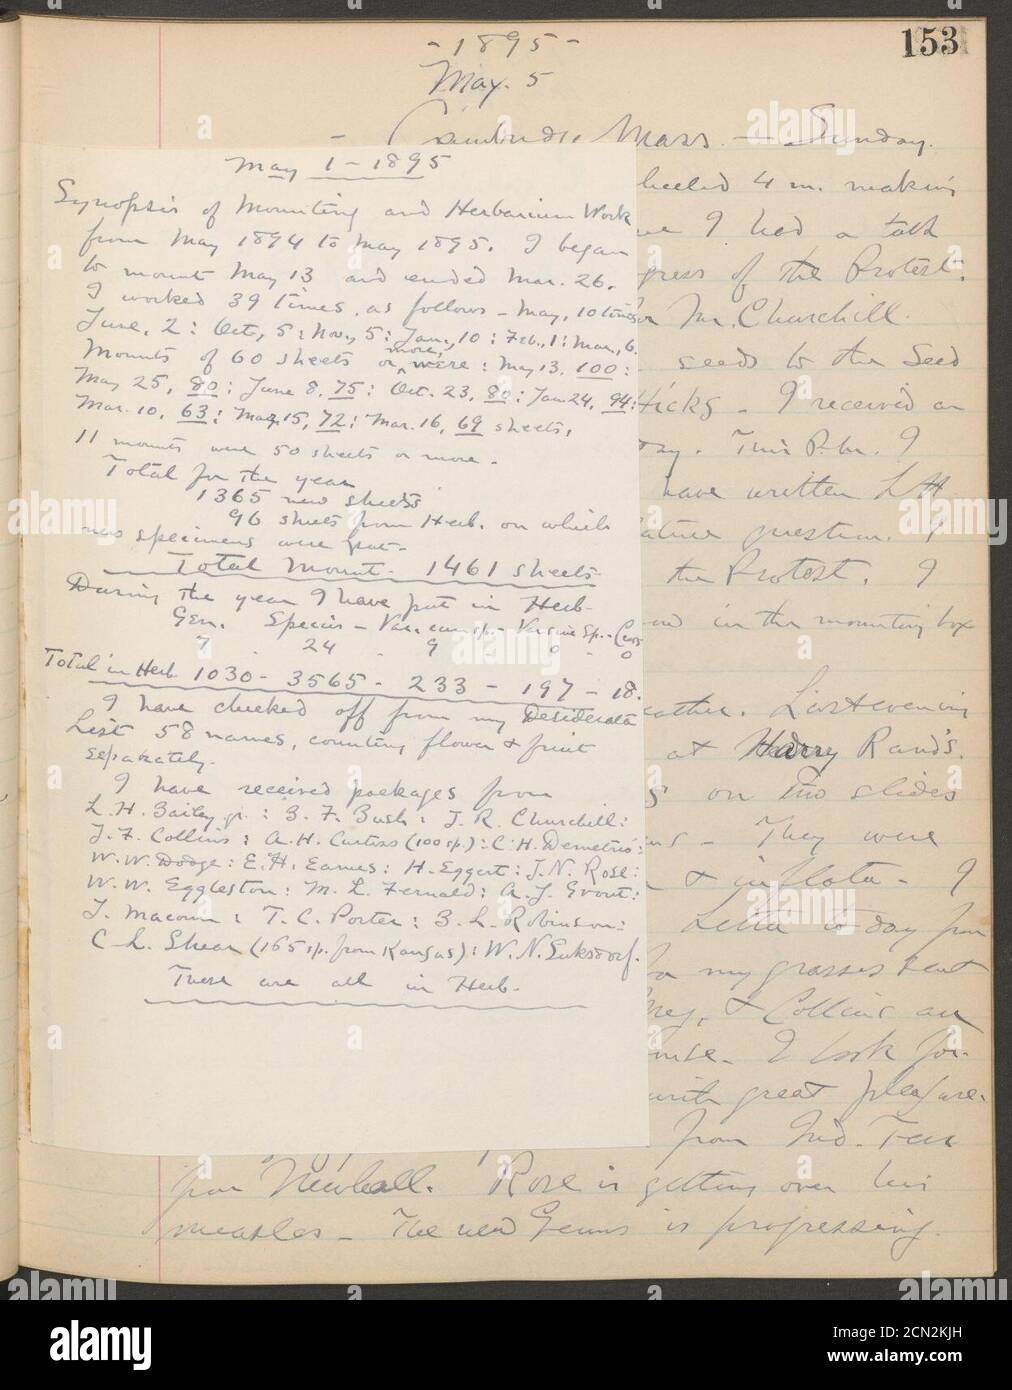 153
- 1895 -
May. 5
- Cambridge, Mass. - Sunday.
May 1 - 1895
Synopsis of Mounting and Herbarium Work
from May 1894 to May 1895. I began
to mount May 13 and ended Mar. 26.
I worked 39 times, as follows - May, 10 times:
June, 2: Oct, 5: Nov., 5: Jan., 10: Feb., 1: Mar., 6.
Mounts of 60 sheets or more, were: May 13, 100:
May 25, 80: June 8, 75: Oct. 23, 80: Jan 24, 94:
Mar. 10, 63: Mar 15, 72: Mar. 16, 69 sheets.
11 mounts were 50 sheets or more.
Total for the year
1365 new sheets
96 sheets from Herb. on which
new specimens were put.
Total Mount - 1461 sheets
During the year I have put in Herb-
Gen. Species - Var. cum sp. - Var sine sp. - Cross
7 - 24 - 9 - 0 - 0
Total in Herb 1030 - 3565 - 233 - 197 - 18.
I have checked off from my Desiderata
List 58 names, counting flower & fruit
separately.
I have received packages from
L. H. Bailey jr.: B. F. Bush: J. R. Churchill:
J. F. Collins: A. H. Curtiss (100 sp.): C. H. Demetrio:
W. W. Dodge: E. H. Eames: H. Eggert: J. N. Rose:
W. W. Eggleston: M. L. Fernald: A. J. Grout:
J. Macoun: T. C. Porter: B. L. Robinson:
C. L. Shear (165 sp. from Kansas): W. N. Suksdorf.
These are all in Herb.
wheeled 4 m. making
I had a talk
gress of the Protest.
Mr. Churchill.
seeds to the Seed
Hicks - I received an
This P.M. I
have written L H
ature question. I
the Protest. I
in the mounting box
eather. Last evening
at Harry Rand's.
on two slides
They were
& inflata - I
Letter to day from
my grasses sent
& Collins are
I look for-
with great pleasure.
from Ind. Terr
from Newhall. Rose is getting over his
measles - The new Genus is progressing.
alamy
Image ID: 2CN2KJH
www.alamy.com